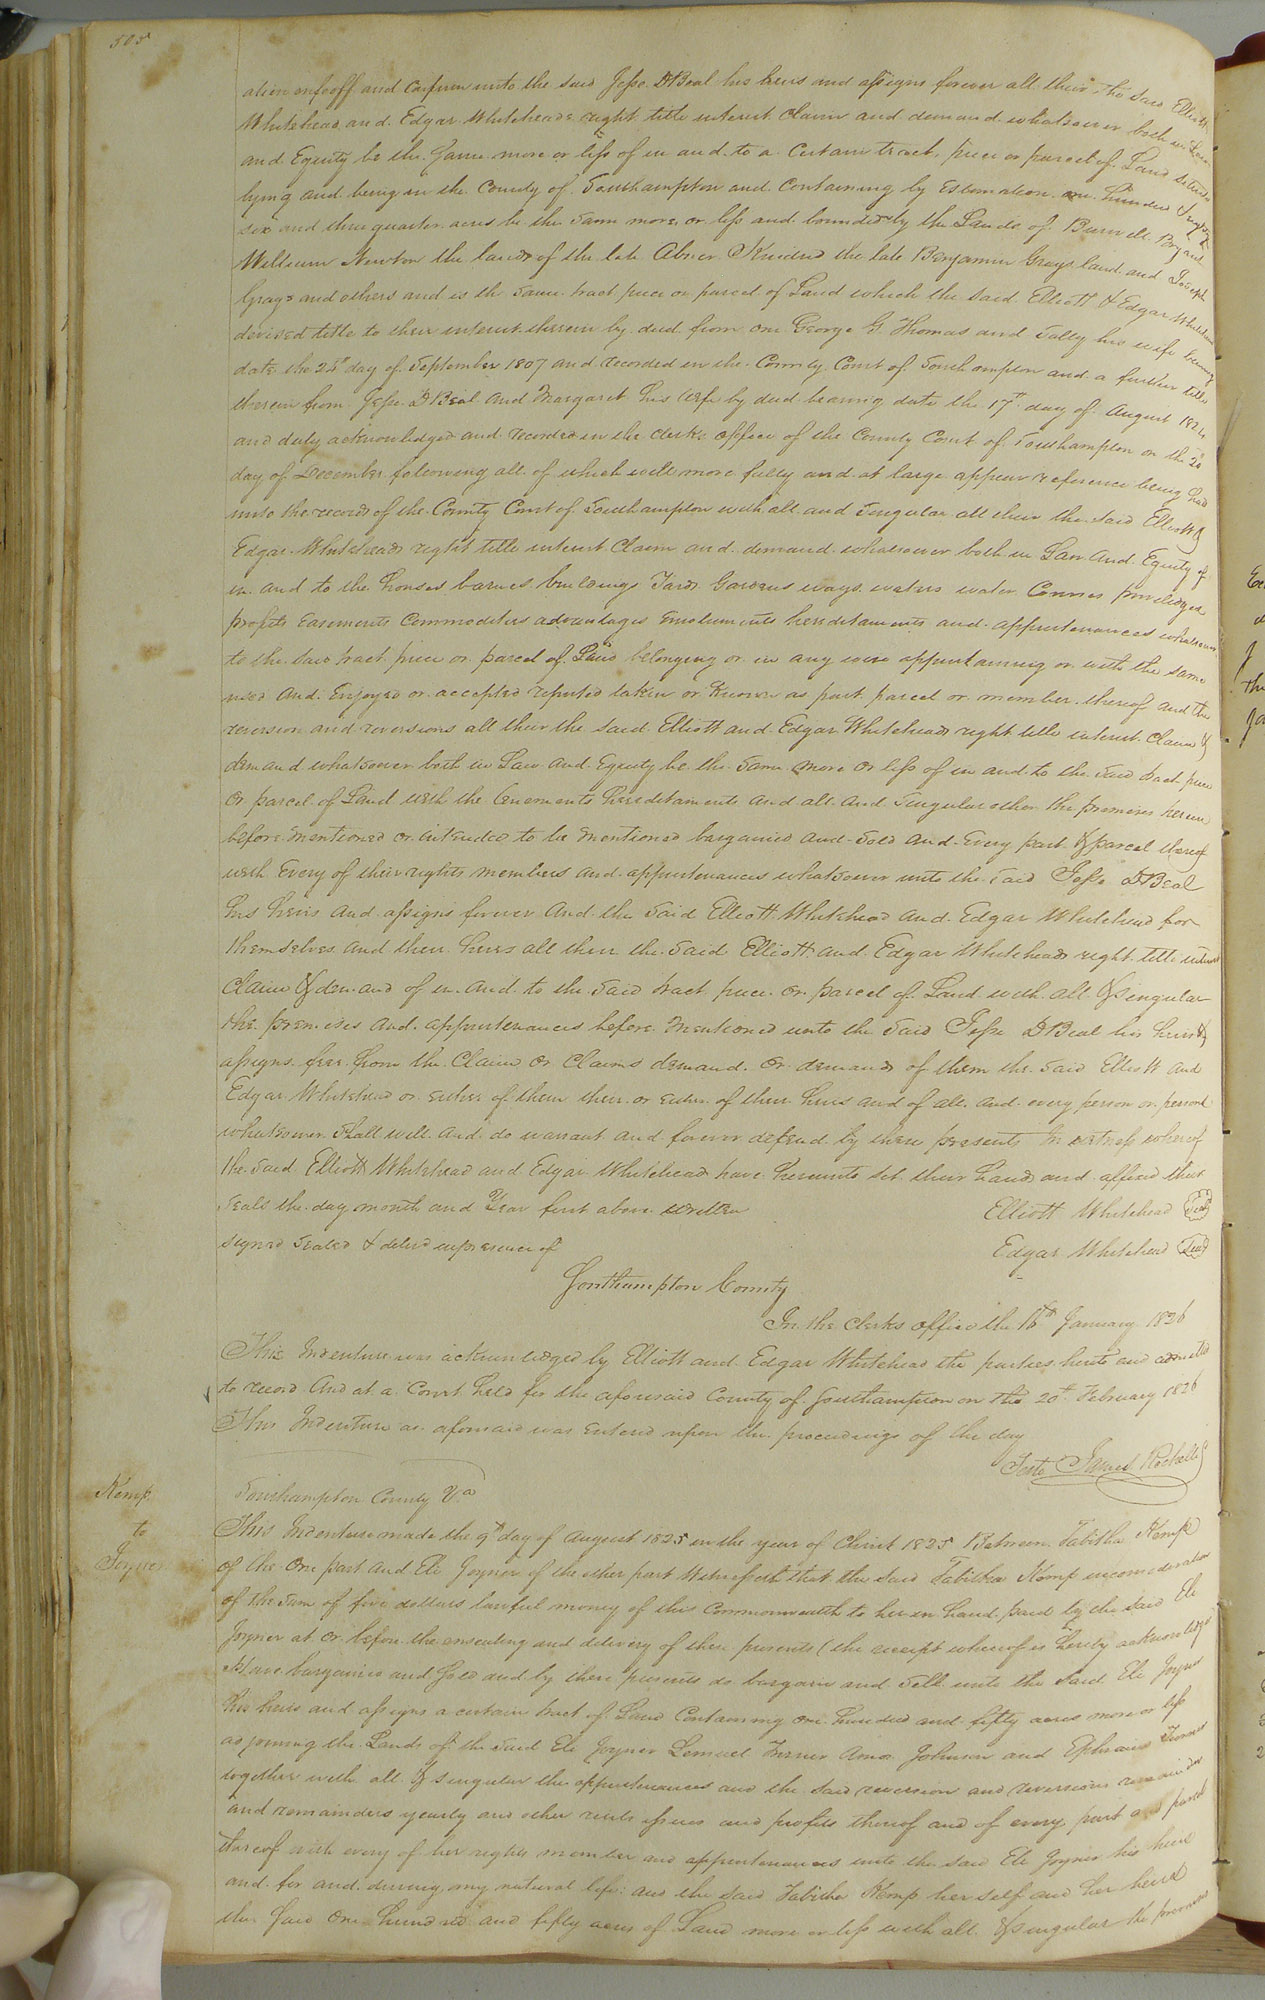 505
alien enfeoff and confirm unto the said Jesse D Beal his heirs and assigns forever all their the said Elliott
Whitehead and Edgar Whiteheads right title interest Claim and demand whatsoever both in Law
and Equity be the same more or less of in and to a Certain tract, piece or parcel of Land situate
lying and being in the County of Southampton and Containing by Estimation one hundred &
six and three quarter acres be the same more or less and bounded by the Lands of Burwell
William Newton the lands of the late Abner Kindred the late Benjamin Grays land and Joseph
Grays and others and is the same tract piece or parcel of Land which the said Elliott & Edgar Whitehead
derived title to their interest therein by deed from one George G. Thomas and Sally his wife bearing
date the day of September 1807 and recorded in the County Court of Southampton and a further title
therein from Jesse D Beal and Margaret his wife by deed bearing date the 17th day of August 1824
and duly acknowledged and recorded in the clerks office of the County Court of Southampton on the
day of December following all of which will more fully and at large appear reference being had
unto the records of the County Court of Southampton with all and Singular all their the Said Elliott &
Edgar Whiteheads right title interest Claim and demand whatsoever both in Law and Equity of
in and to the houses barnes buildings Yards Gardens ways waters water Courses priviledges
profits Easements Commodities advantages Emoluments hereditaments and appurtenances whatsoever
to the said tract piece or parcel of Land belonging or in any wise appertaining or with the same
used and Enjoyed or accepted reputed taken or Known as part parcel or member thereof and the
reversion and reversions all their the said Elliott and Edgar Whiteheads right title interest Claim &
demand whatsoever both in Law and Equity be the same more or less of in and to the said tract piece
or parcel of Land with the tenements hereditaments and all and Singular other the premises herein
before mentioned or intended to be mentioned bargained and sold and Every part & parcel thereof
with Every of their rights members and appurtenances whatsoever unto the said Jesse D Beal
his heirs and assigns forever And the Said Elliott Whitehead and Edgar Whitehead for
themselves and their heirs all their the Said Elliott and Edgar Whiteheads right title interest
Claim & demand of in and to the said tract piece or parcel of Land with all & Singular
the premises and appurtenances before mentioned unto the said Jesse D Beal his heirs &
assigns free from the Claim or Claims demand or demands of them the said Elliott and
Edgar Whitehead or either of them their or either of their heirs and of all and every person or persons
whatsoever Shall will and do warrant and forever defend by these presents In witness whereof
the Said Elliott Whitehead and Edgar Whitehead have hereunto set their hands and affixed their
seals the day month and Year first above written
Elliott Whitehead Seal
signed sealed & delivd in presence of
Edgar Whitehead Seal
Southampton County
In the Clerks office the 16th January 1826
This Indenture was acknowledged by Elliott and Edgar Whitehead the parties hereto and admitted
to record And at a Court held for the aforesaid County of Southampton on the 20th February 1826
This Indenture as aforesaid was entered upon the proceedings of the day
Teste James Rochelle
Kemp
to
Joyner
Southampton County Va
This Indenture made the 9th day of August 1825 in the year of Christ 1825 Between Tabitha Kemp
of the one part and Eli Joyner of the other part Witnesseth that the said Tabitha Kemp in consideration
of the sum of five dollars lawful money of this Commonwealth to her in hand paid by the said Eli
Joyner at or before the ensealing and delivery of these presents (the receipt whereof is hereby acknowledged
Have bargained and Sold and by these presents do bargain and sell unto the said Eli Joyner
his heirs and assigns a certain tract of Land Containing one hundred and fifty acres more or less
adjoining the Lands of the Said Eli Joyner Lemuel Turner Amos Johnson and Ephraim
together with all & singular the appurtenances and the said reversion and reversions remainder
and remainders yearly and other rents issues and profits thereof and of every part and parcel
thereof with every of her rights member and appurtenances unto the said Eli Joyner his heirs
and for and during my natural life: and the said Tabitha Kemp her self and her heirs
the said One hundred and fifty acres of Land more or less with all & singular the premises